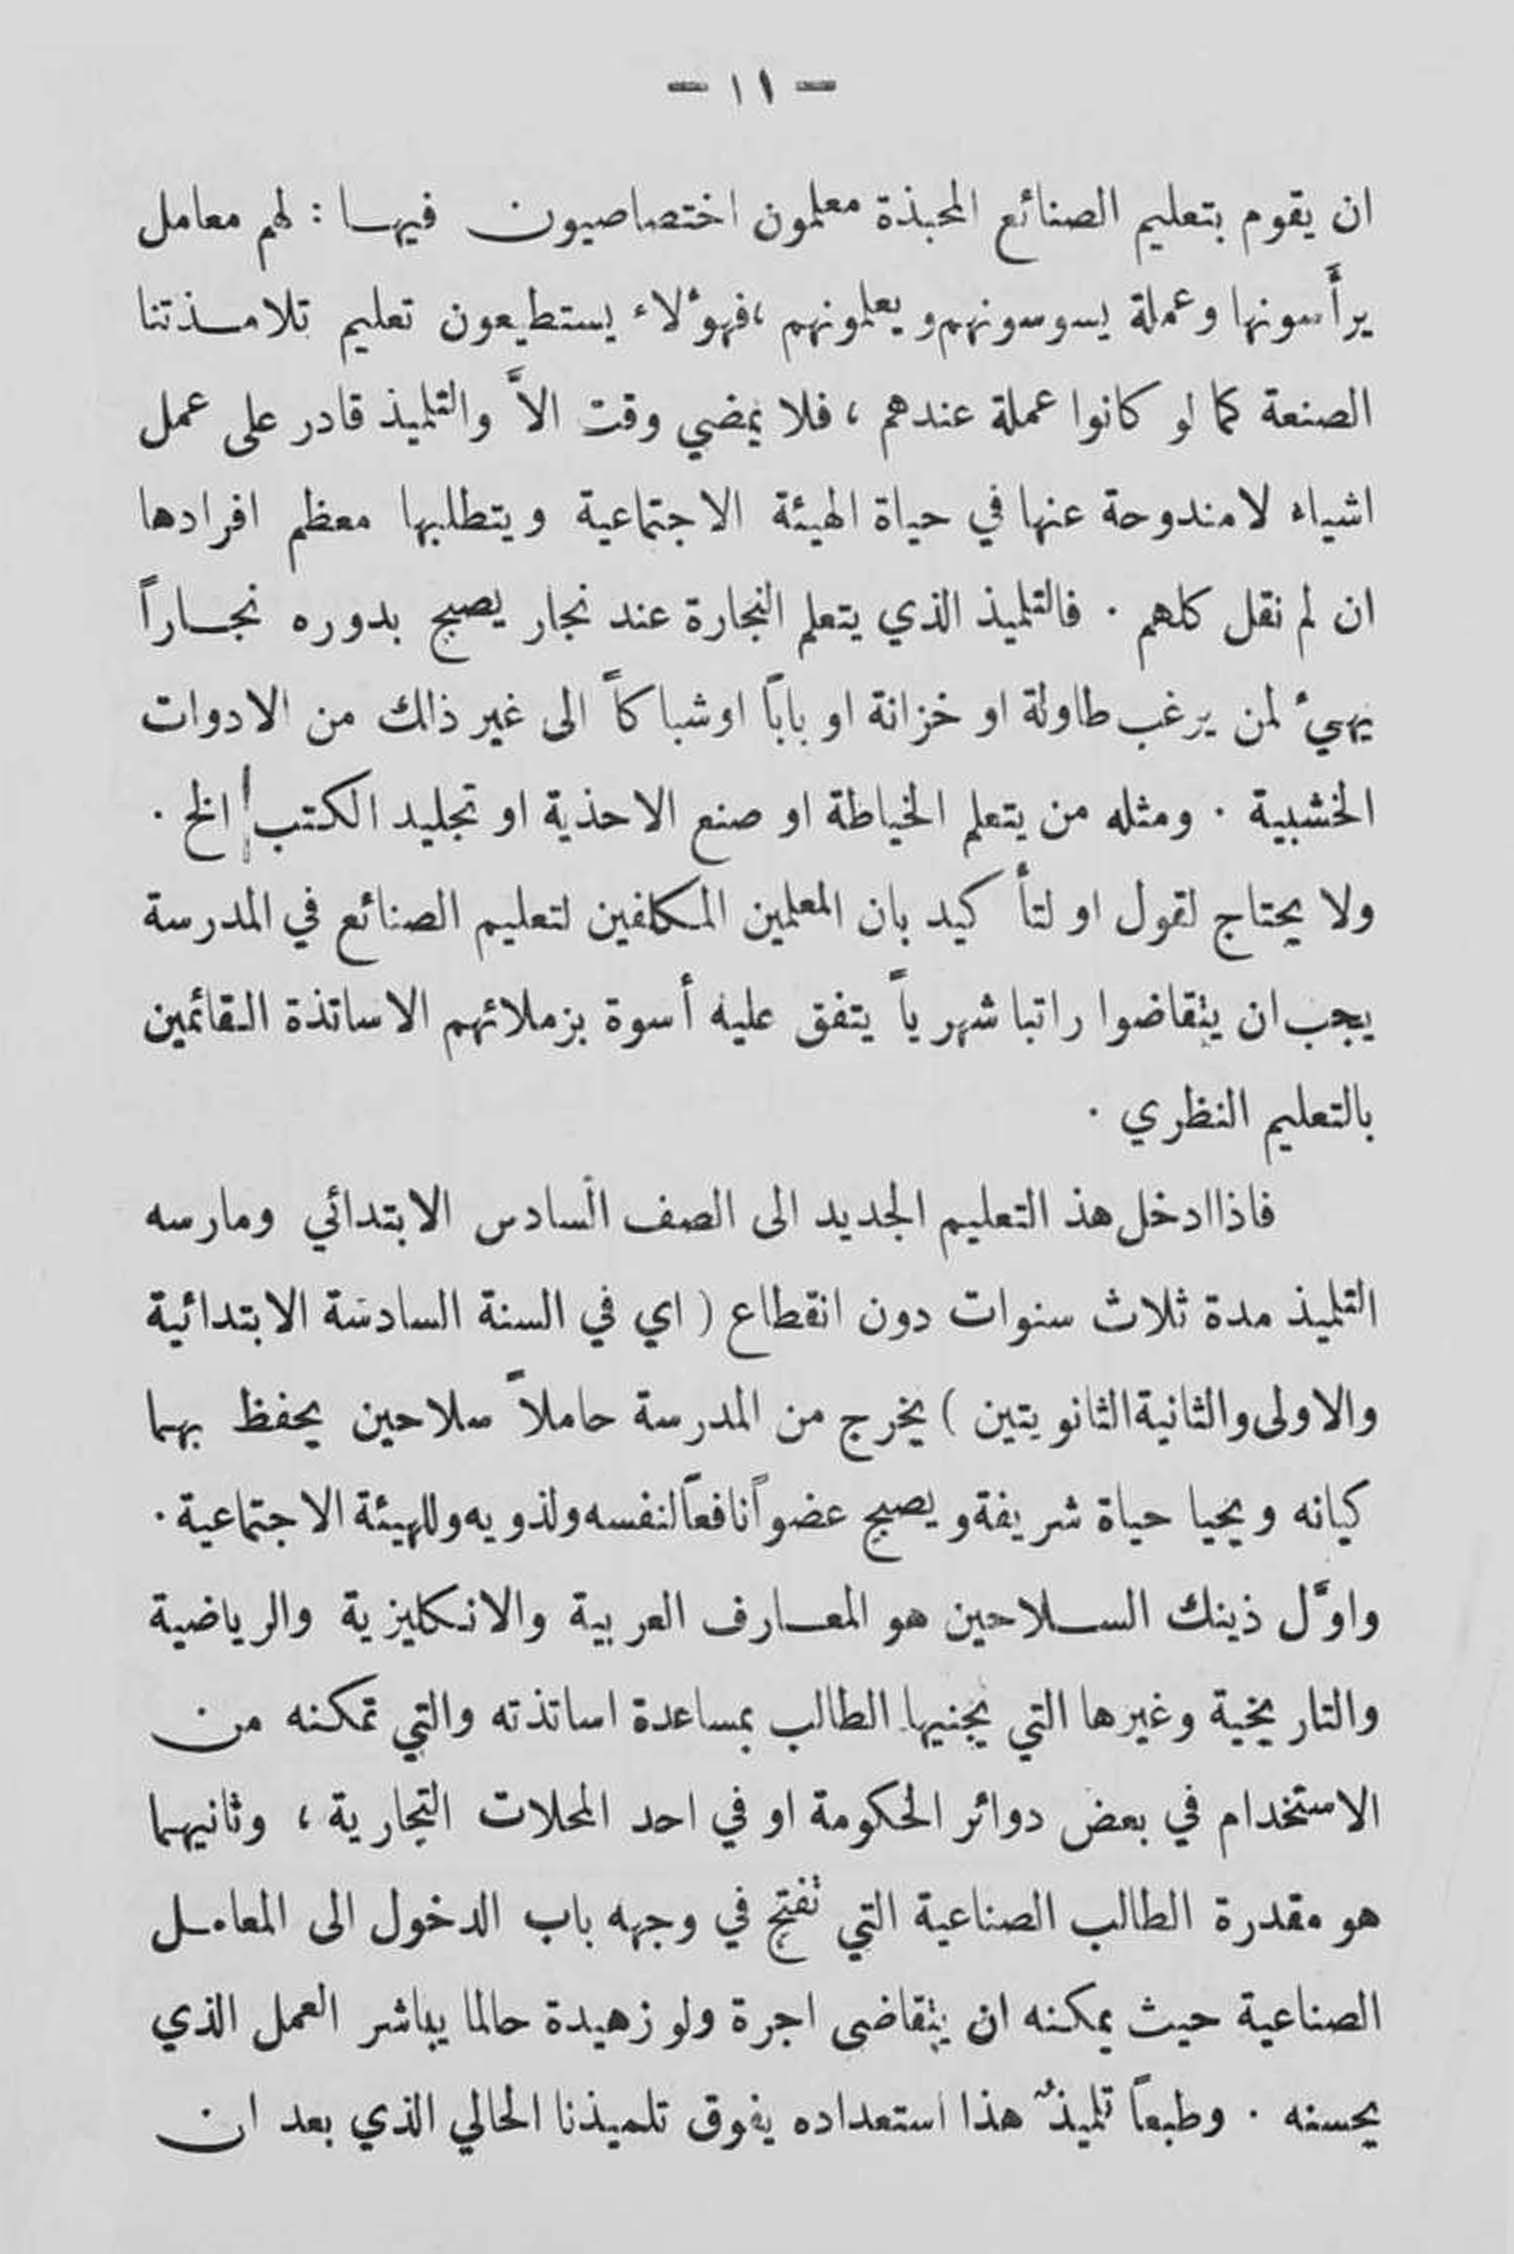 — ١١ —
ان يقوم بتعليم الصنائع المحبذة معلمون اختصاصيون فيها : لهم معامل
يرأسونها وعملة يسوسونهم ويعلمونهم ،فهؤلاء يستطيعون تعليم تلامذتنا
الصنعة كما لو كانوا عملة عندهم ، فلا يمضي وقت الاَّ والتلميذ قادر على عمل
اشياء لا مندوحة عنها في حياة الهيئة الاجتماعية ويتطلبها معظم افرادها
ان لم نقل كلهم . فالتلميذ الذي يتعلم النجارة عند نجار يصبح بدوره نجاراً
يهيءُ لمن يرغب طاولة او خزانة او باباً او شباكاً الى غير ذالك من الادوات
الخشبية . ومثله من يتعلم الخياطة او صنع الاحذية او تجليد الكتب الخ .
ولا يحتاج لقول او لتأكيد بان المعلمين المكلفين لتعليم الصنائع في المدرسة
يجب ان يتقاضوا راتبا شهرياً يتفق عليه أسوة بزملائهم الاساتذة القائمين
بالتعليم النظري .
فاذا ادخل هذ التعليم الجديد الى الصف السادس الابتدائي ومارسه
التلميذ مدة ثلاث سنوات دون انقطاع ( اي في السنة السادسة الابتدائية
والاولى والثانية الثانويتين ) يخرج من المدرسة حاملاً سلاحين يحفظ بهما
كيانه ويحيا حياة شريفة ويصبح عضواً نافعاً لنفسه ولذويه وللهيئة الاجتماعية .
واوَّل ذينك السلاحين هو المعارف العربية والانكليزية والرياضية
والتاريخية وغيرها التي يجنيها الطالب بمساعدة اساتذته والتي تمكنه من
الاستخدام في بعض دوائر الحكومة او في احد المحلات التجارية ، وثانيهما
هو مقدرة الطالب الصناعية التي تفتح في وجهه باب الدخول الى المعامل
الصناعية حيث يمكنه ان يتقاضى اجرة ولو زهيدة حالما يباشر العمل الذي
يحسنه . وطبعاً تلميذٌ هذا استعداده يفوق تلميذنا الحالي الذي بعد ان